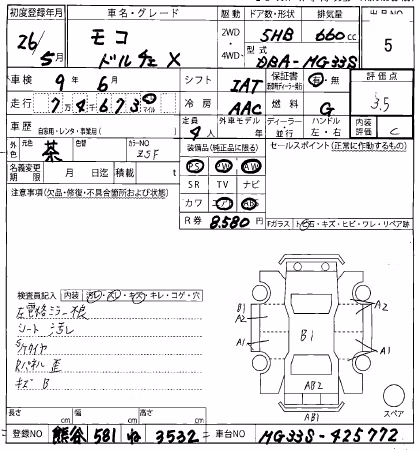 初度登録年月 車名・グレード 駆動 ドア数・形状 排気量 出品NO
26/5月 モコ ドルチェ X 2WD・4WD・ 5HB 660cc 5
型式 DBA-MG33S
車検 9年6月 シフト IAT 保証書 有・無 評価点
走行 7万4千673 マイル 冷房 AAC 燃料 G 3.5
車歴 自家用・レンタ・事業用( ) 定員 4人 外車モデル 年 ディーラー・並行 ハンドル 左・右 内装評価 C
外色 元色 茶 色替 カラーNO Z5F 装備品(純正品に限る) セールスポイント(正常に動作するもの)
名義変更期限 月 日迄 積載 t PS PW AW
注意事項(欠品・修復・不具合箇所および状態) SR TV ナビ
カワ エアB ABS
R券 8,580円 Fガラス トビ石・キズ・ヒビ・ワレ・リペア跡
検査員記入 内装 汚レ・スレ・キズ・キレ・コゲ・穴
シート 汚レ
Sケタイヤ
Rパネル 歪
キズ B
B1
A2
A1
B1
A2
A1
AB2
AB1
スペア
長さ cm 幅 cm 高さ cm
登録NO 熊谷 581 ね 3532 車台NO MG33S-425772